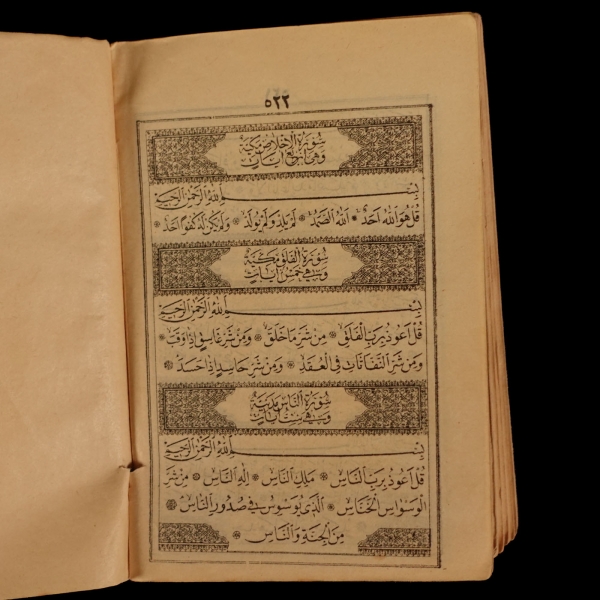 ٥٢٢
سُورَةُ الْإِخْلَاصِ مَكِّيَّةٌ
وَهِيَ أَرْبَعُ آيَاتٍ
بِسْمِ اللهِ الرَّحْمٰنِ الرَّحِيمِ
قُلْ هُوَ اللهُ أَحَدٌ * اَللهُ الصَّمَدُ * لَمْ يَلِدْ وَلَمْ يُولَدْ * وَلَمْ يَكُنْ لَهُ كُفُوًا أَحَدٌ *
سُورَةُ الْفَلَقِ مَكِّيَّةٌ
وَهِيَ خَمْسُ آيَاتٍ
بِسْمِ اللهِ الرَّحْمٰنِ الرَّحِيمِ
قُلْ أَعُوذُ بِرَبِّ الْفَلَقِ * مِنْ شَرِّ مَا خَلَقَ * وَمِنْ شَرِّ غَاسِقٍ إِذَا وَقَبَ *
وَمِنْ شَرِّ النَّفَّاثَاتِ فِي الْعُقَدِ * وَمِنْ شَرِّ حَاسِدٍ إِذَا حَسَدَ *
سُورَةُ النَّاسِ مَدَنِيَّةٌ
وَهِيَ سِتُّ آيَاتٍ
بِسْمِ اللهِ الرَّحْمٰنِ الرَّحِيمِ
قُلْ أَعُوذُ بِرَبِّ النَّاسِ * مَلِكِ النَّاسِ * إِلٰهِ النَّاسِ * مِنْ شَرِّ
الْوَسْوَاسِ الْخَنَّاسِ * اَلَّذِي يُوَسْوِسُ فِي صُدُورِ النَّاسِ *
مِنَ الْجِنَّةِ وَالنَّاسِ *